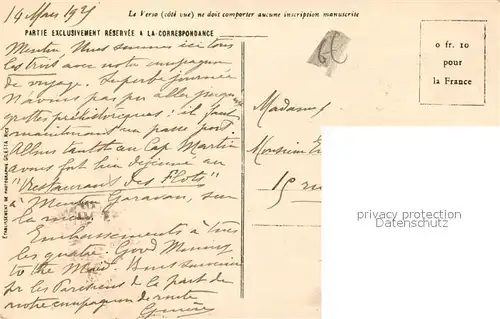 14 Mars 1925
Le Verso (côté vue) ne doit comporter aucune inscription manuscrite
PARTIE EXCLUSIVEMENT RÉSERVÉE A LA CORRESPONDANCE
0 fr. 10
pour
la France
Menton. Nous sommes ici tous
les trois avec notre compagnon
de voyage. Superbe journée
N'avons pas pu aller jusqu'aux
grottes préhistoriques : il faut
maintenant un passe port.
Allons tantôt au Cap Martin
avons fort bien déjeuné au
"Restaurant des Flots"
à Menton Garavan, sur
la
Embrassements à tous
les quatre. Good
to the Maid. Bon souvenir
pr les Parisiens de la part de
notre compagnon de route
Madame
Monsieur
15
ETABLISSEMENT DE PHOTOGRAPHIE GILETTA NICE
copyright
protection watermark